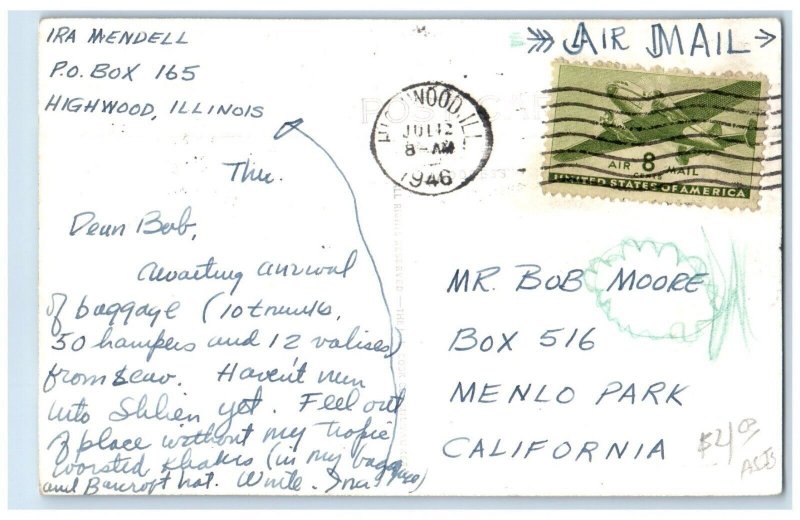 IRA MENDELL
P.O. BOX 165
HIGHWOOD, ILLINOIS
AIR MAIL
HIGHWOOD, ILL.
JUL 12
8-AM
1946
AIR 8 MAIL
CENTS
UNITED STATES OF AMERICA
Thu.
Dear Bob,
Awaiting arrival
of baggage (10 trunks,
50 hampers and 12 valises)
from Haven't run
into yet. Feel out
of place without my tropic
worsted khakis (in my baggage)
and Bancroft hat. Write. Ira
MR. BOB MOORE
BOX 516
MENLO PARK
CALIFORNIA
$4.00